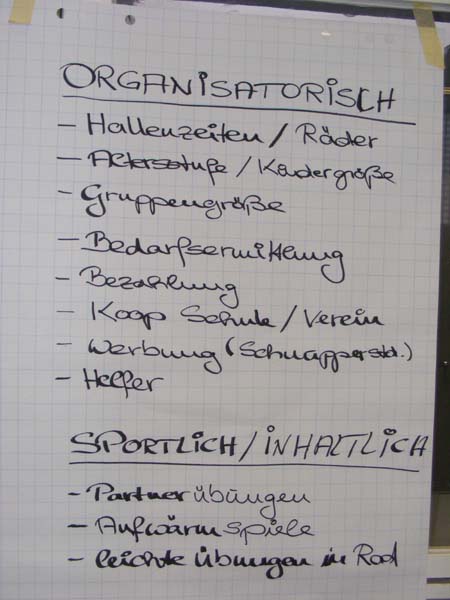 ORGANISATORISCH
- Hallenzeiten / Räder
- Altersstufe / Kindergröße
- Gruppengröße
- Bedarfsermittlung
- Bezahlung
- Koop Schule / Verein
- Werbung (Schnupperstd.)
- Helfer
SPORTLICH / INHALTLICH
- Partnerübungen
- Aufwärmspiele
- leichte Übungen in Rad